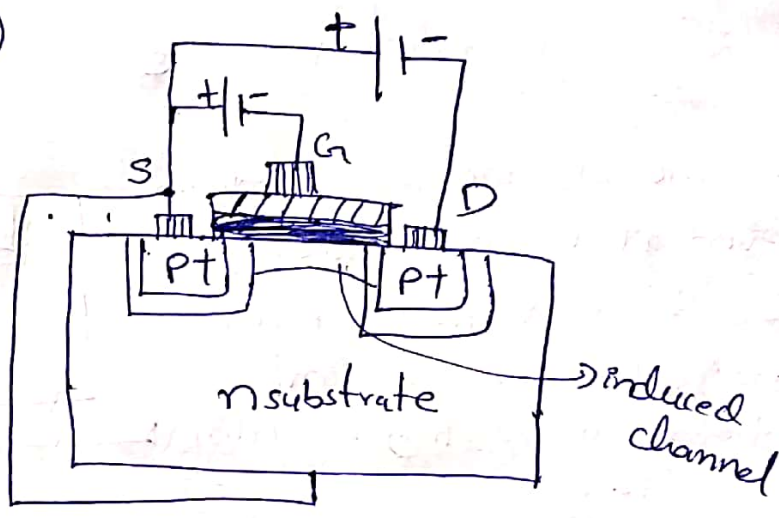 )
+ -
+ -
G
S
D
p+
p+
n substrate
induced
channel